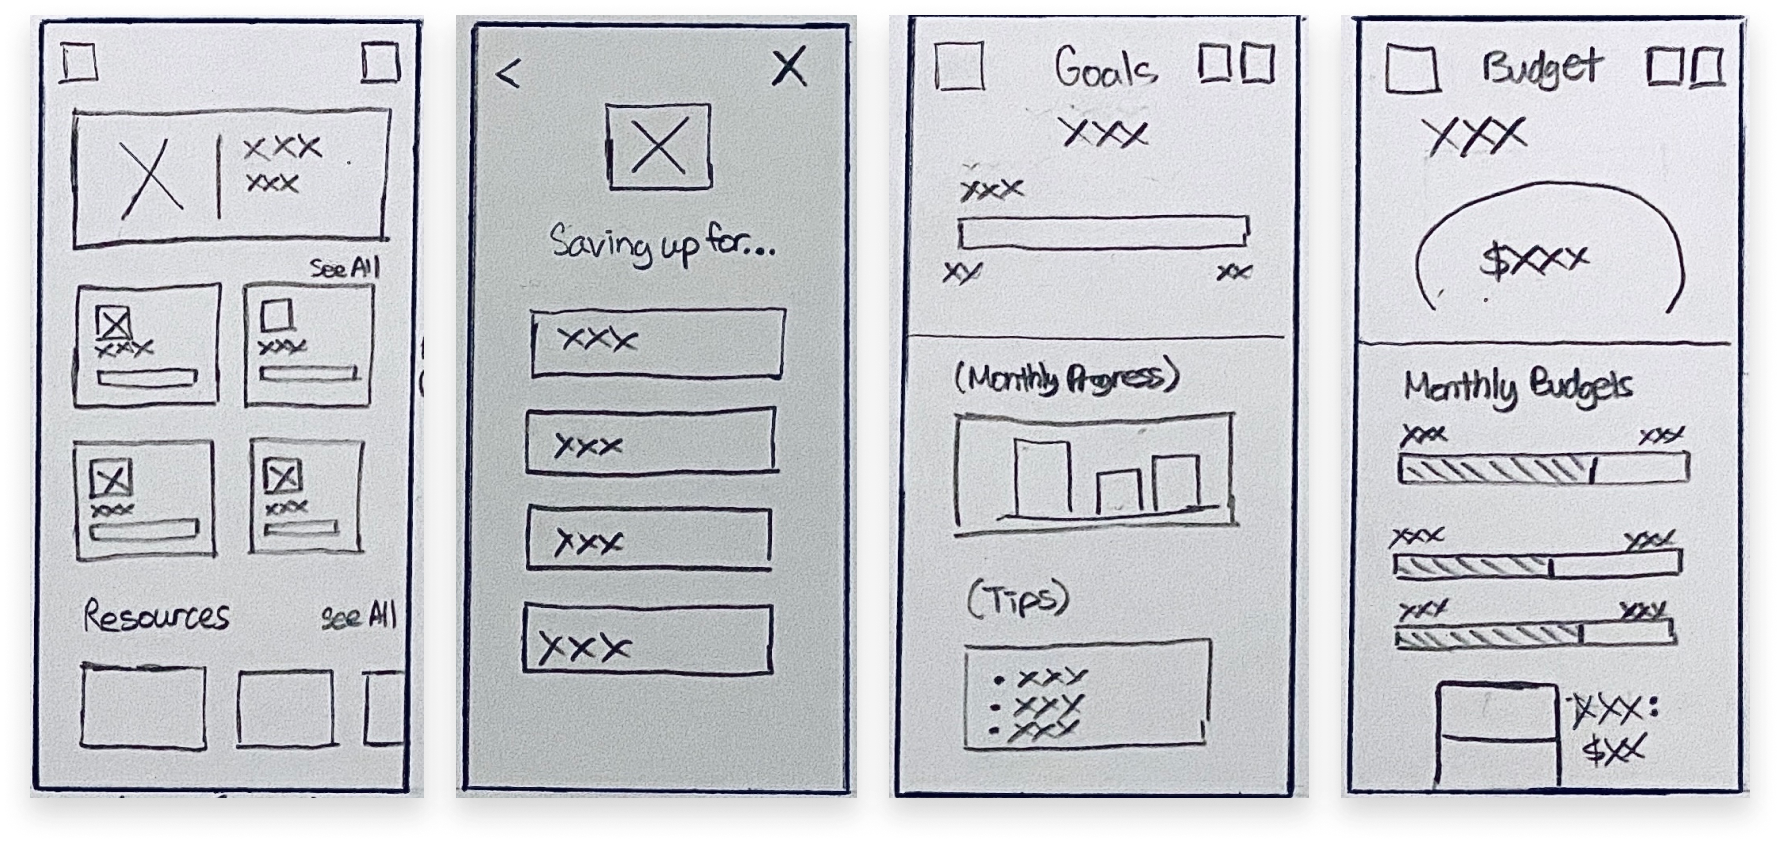 X
XXX
XXX
See All
XXX
XXX
XXX
XXX
Resources
See All
<
X
X
Saving up for...
XXX
XXX
XXX
XXX
Goals
XXX
XXX
XX
XX
(Monthly Progress)
(Tips)
• XXX
• XXX
• XXX
Budget
XXX
$XXX
Monthly Budgets
XXX
XXX
XXX
XXX
XXX
XXX
XXX:
$XX